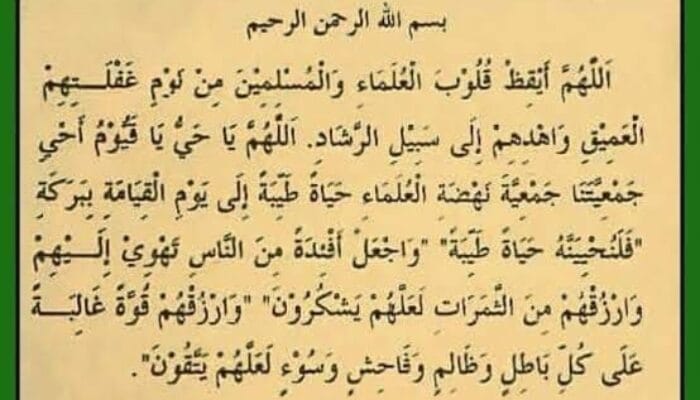 بسم الله الرحمن الرحيم
اَللّٰهُمَّ أَيْقِظْ قُلُوْبَ الْعُلَمَاءِ وَالْمُسْلِمِيْنَ مِنْ نَوْمِ غَفْلَــتِهِمْ
الْعَمِيْقِ وَاهْدِهِمْ إِلَى سَبِيْلِ الرَّشَادِ. اَللّٰهُمَّ يَا حَيُّ يَا قَيُّوْمُ أَحْيِ
جَمْعِيَّتَنَا جَمْعِيَّةَ نَهْضَةِ الْعُلَمَاءِ حَيَاةً طَيِّبَةً إِلَى يَوْمِ الْقِيَامَةِ بِبَرَكَةِ
"فَلَنُحْيِيَنَّهُ حَيَاةً طَيِّبَةً" "وَاجْعَلْ أَفْئِدَةً مِنَ النَّاسِ تَهْوِيْ إِلَــيْهِمْ
وَارْزُقْهُمْ مِنَ الثَّمَرَاتِ لَعَلَّهُمْ يَشْكُرُوْنَ" "وَارْزُقْهُمْ قُوَّةً غَالِبَــةً
عَلَى كُلِّ بَاطِلٍ وَظَالِمٍ وَفَاحِشٍ وَسُوْءٍ لَعَلَّهُمْ يَتَّقُوْنَ".